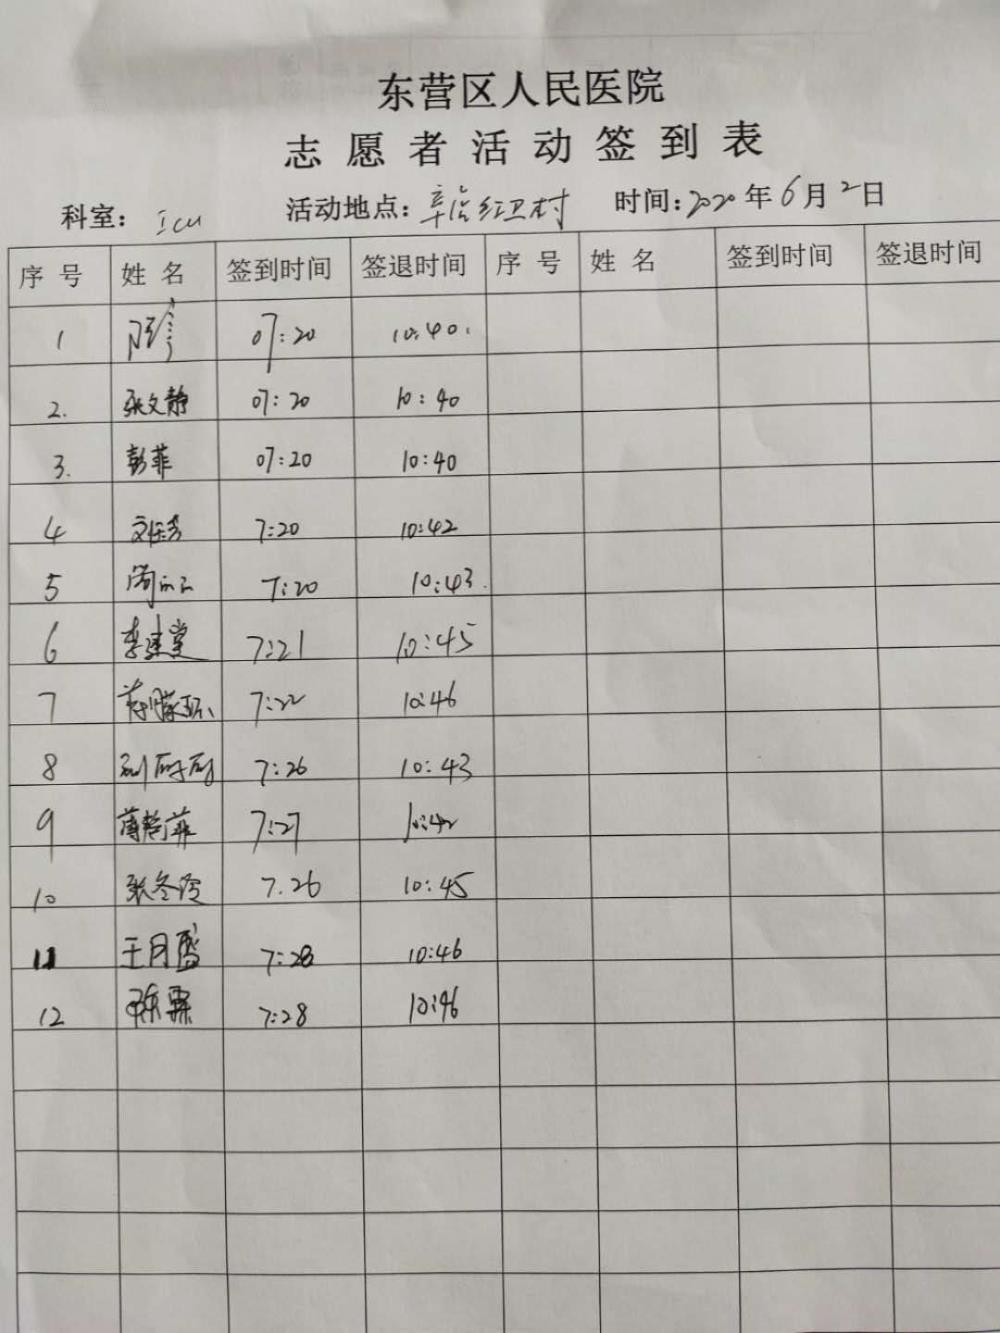 东营区人民医院
志愿者活动签到表
科室: ICU 活动地点: 辛店红卫村 时间: 2020年6月2日
序号 姓名 签到时间 签退时间 序号 姓名 签到时间 签退时间
1 07:20 10:40.
2. 张文静 07:20 10:40
3. 彭菲 07:20 10:40
4 7:20 10:42
5 7:20 10:43.
6 李建堂 7:21 10:45
7 7:22 10:46
8 7:26 10:43
9 7:27 10:42
10 张冬玲 7.26 10:45
11 王月盛 7:28 10:46
12 7:28 10:46